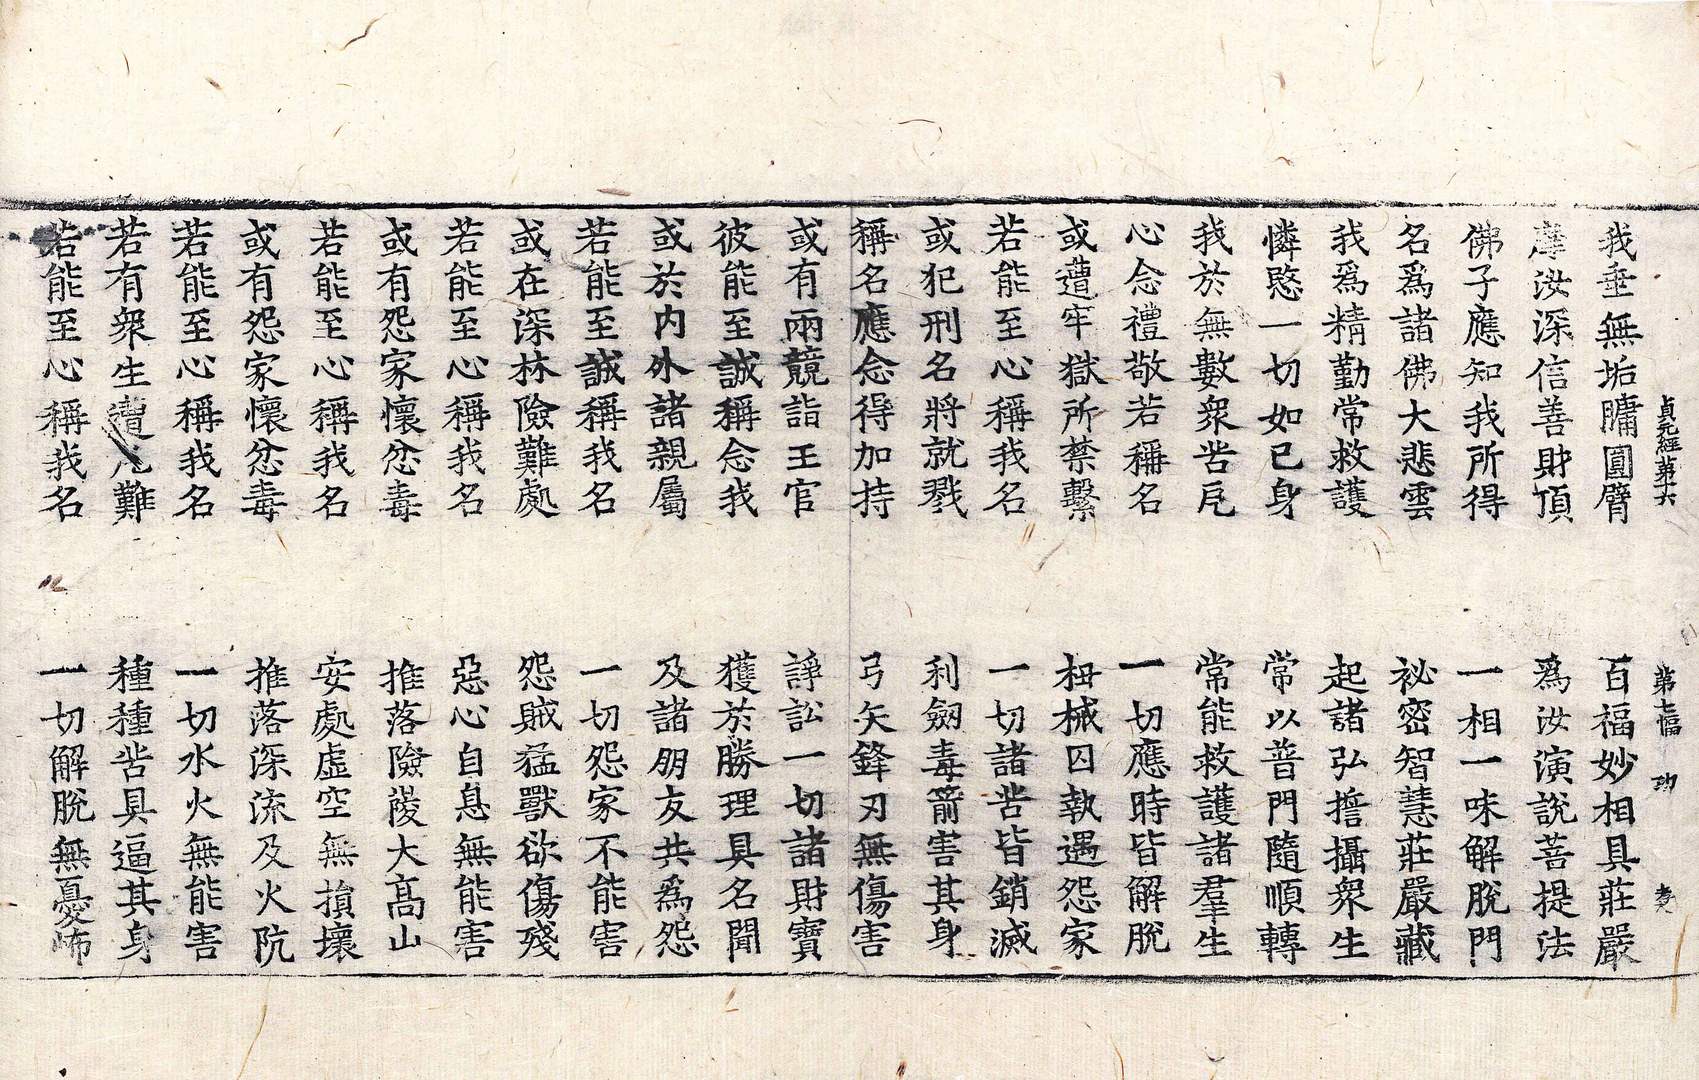 貞元經第十六　第七幅　功
我垂無垢𦟛圓臂　百福妙相具莊嚴
摩汝深信善財頂　爲汝演說菩提法
佛子應知我所得　一相一味解脫門
名爲諸佛大悲雲　祕密智慧莊嚴藏
我爲精勤常救護　起諸弘誓攝衆生
憐愍一切如己身　常以普門隨順轉
我於無數衆苦厄　常能救護諸羣生
心念禮敬若稱名　一切應時皆解脫
或遭牢獄所禁繫　杻械囚執遇怨家
若能至心稱我名　一切諸苦皆銷滅
或犯刑名將就戮　利劒毒箭害其身
稱名應念得加持　弓矢鋒刃無傷害
或有兩競詣王官　諍訟一切諸財寶
彼能至誠稱念我　獲於勝理具名聞
或於內外諸親屬　及諸朋友共爲怨
若能至誠稱我名　一切怨家不能害
或在深林險難處　怨賊猛獸欲傷殘
若能至心稱我名　惡心自息無能害
或有怨家懷忿毒　推落險陖大高山
若能至心稱我名　安處虛空無損壞
或有怨家懷忿毒　推落深流及火阬
若能至心稱我名　一切水火無能害
若有衆生遭厄難　種種苦具逼其身
若能至心稱我名　一切解脫無憂怖